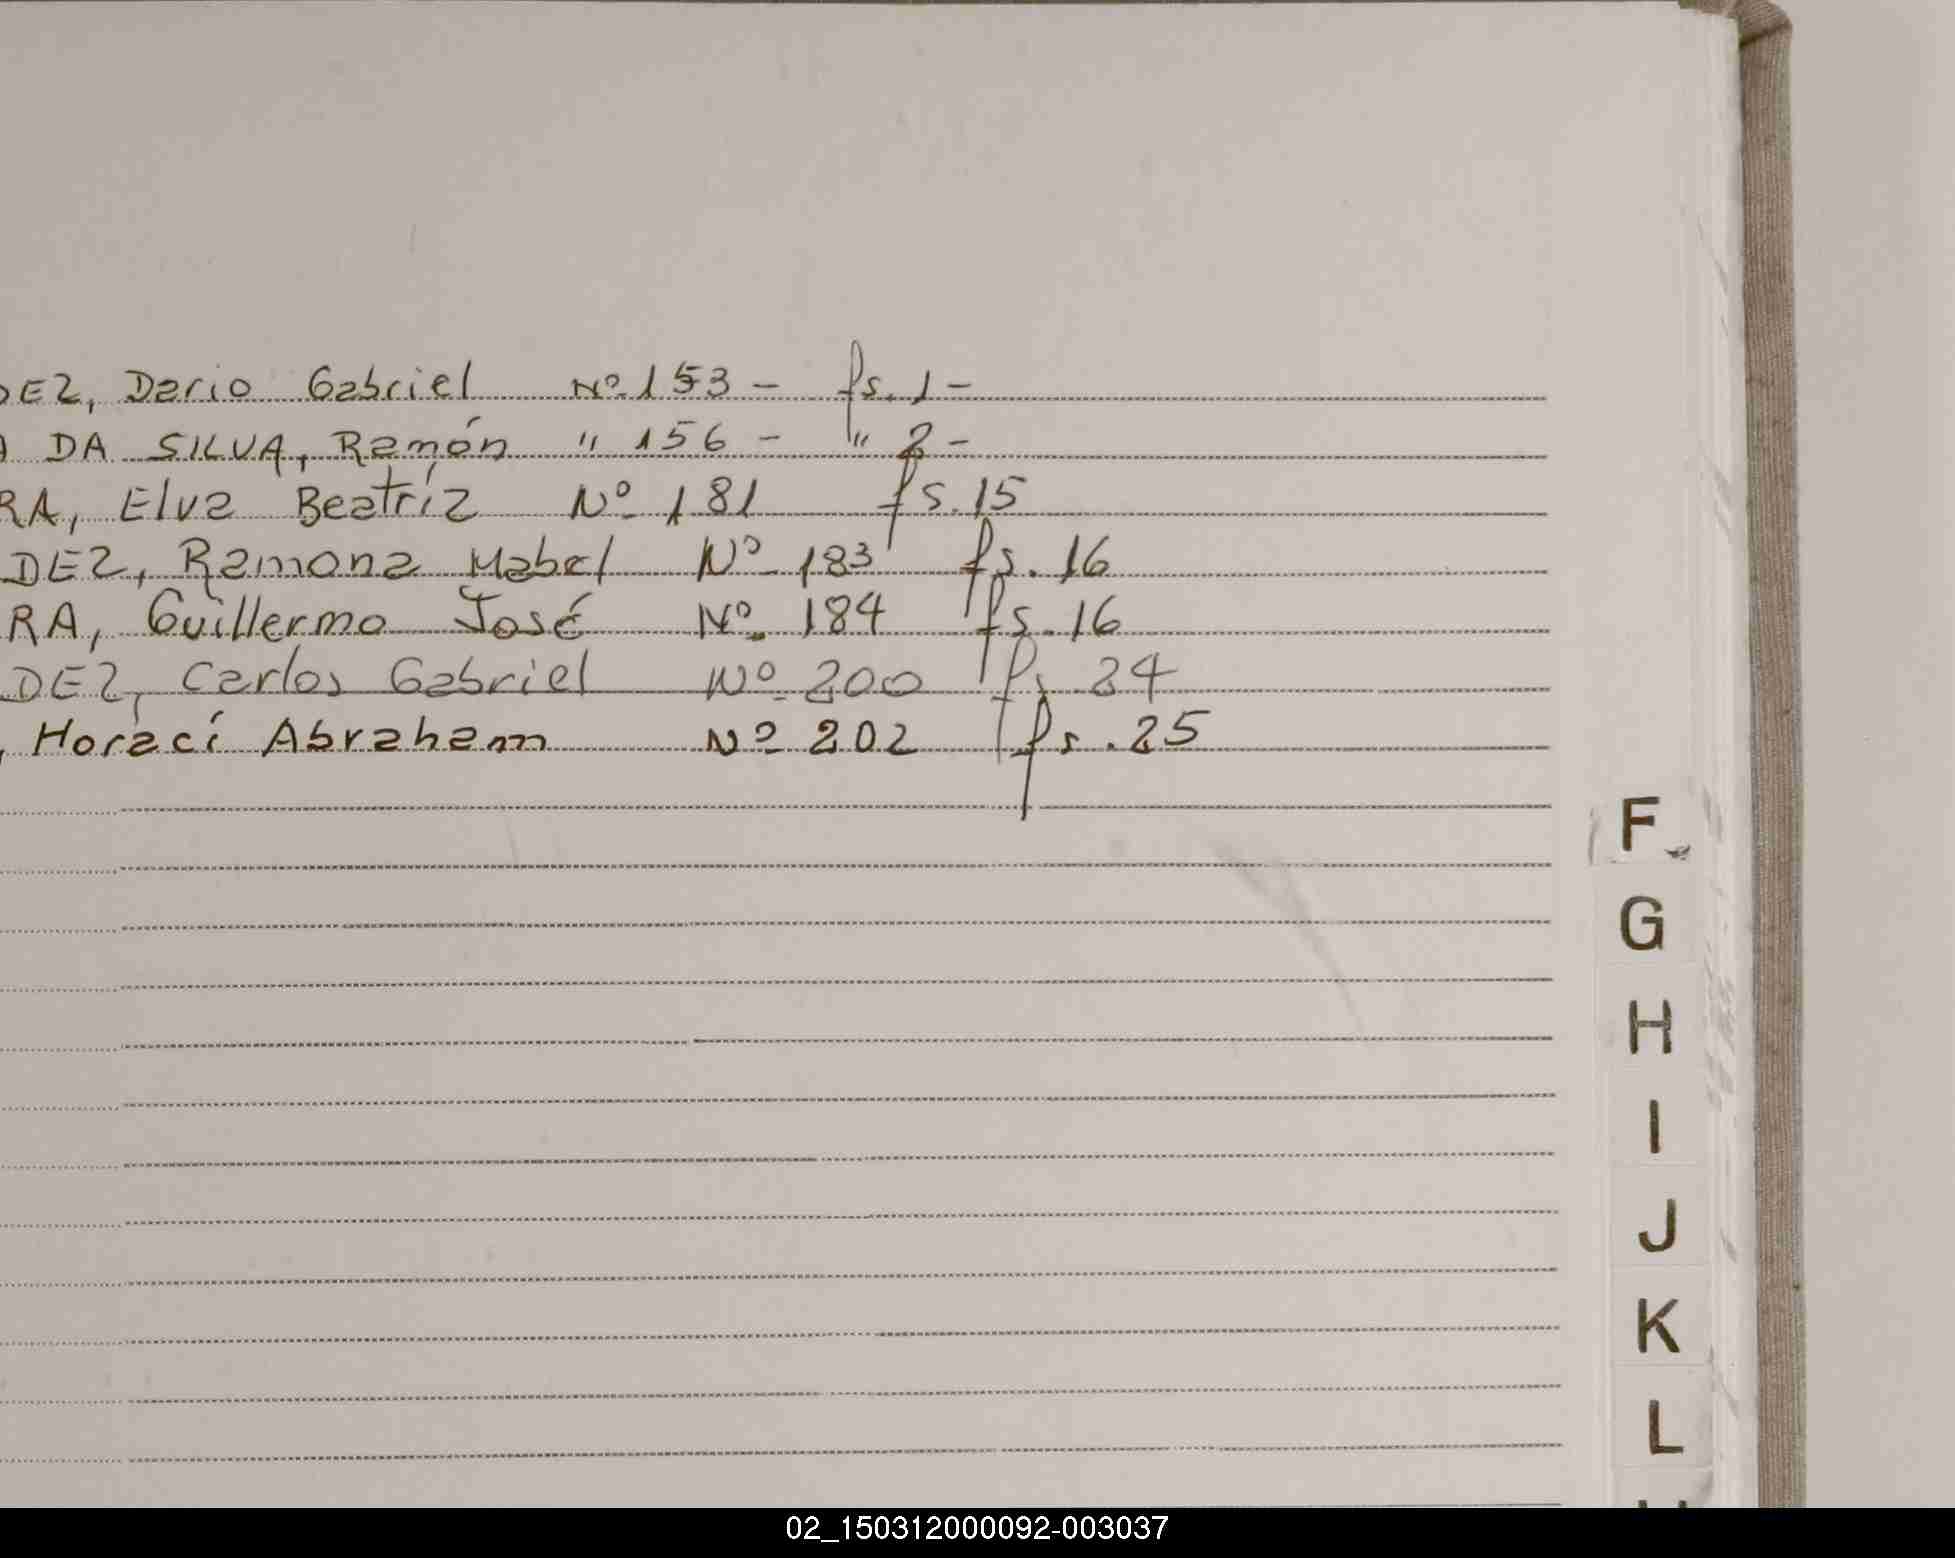 DEZ, Dario Gabriel Nº 153 - fs. 1 -
DA SILVA, Ramón " 156 - " 2 -
RA, Elva Beatríz Nº 181 fs. 15
DEZ, Ramona Mabel Nº 183 fs. 16
RA, Guillermo José Nº 184 fs. 16
DEZ, Carlos Gabriel Nº 200 fs 24
, Horací Abraham Nº 202 fs. 25
F
G
H
I
J
K
L
02_150312000092-003037